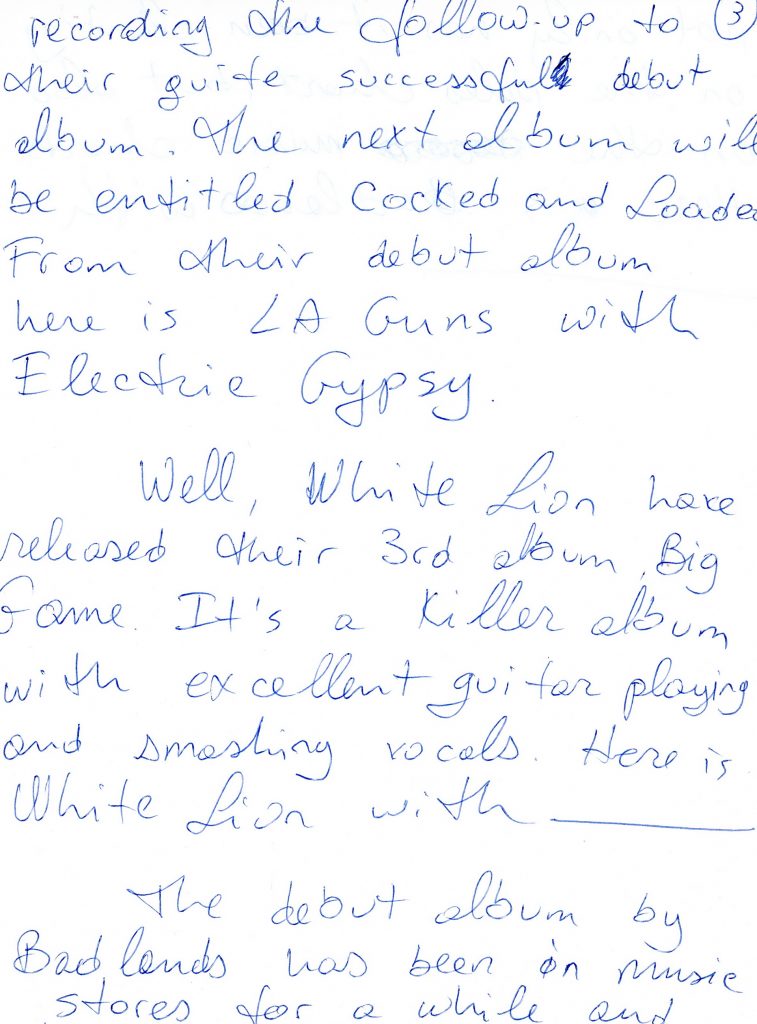 recording the follow-up to 3
their quite successful debut
album. The next album will
be entitled Cocked and Loade
From their debut album
here is LA Guns with
Electric Gypsy.
Well, White Lion have
released their 3rd album, Big
Game. It's a killer album
with excellent guitar playing
and smashing vocals. Here is
White Lion with ________
The debut album by
Badlands has been in music
stores for a while and